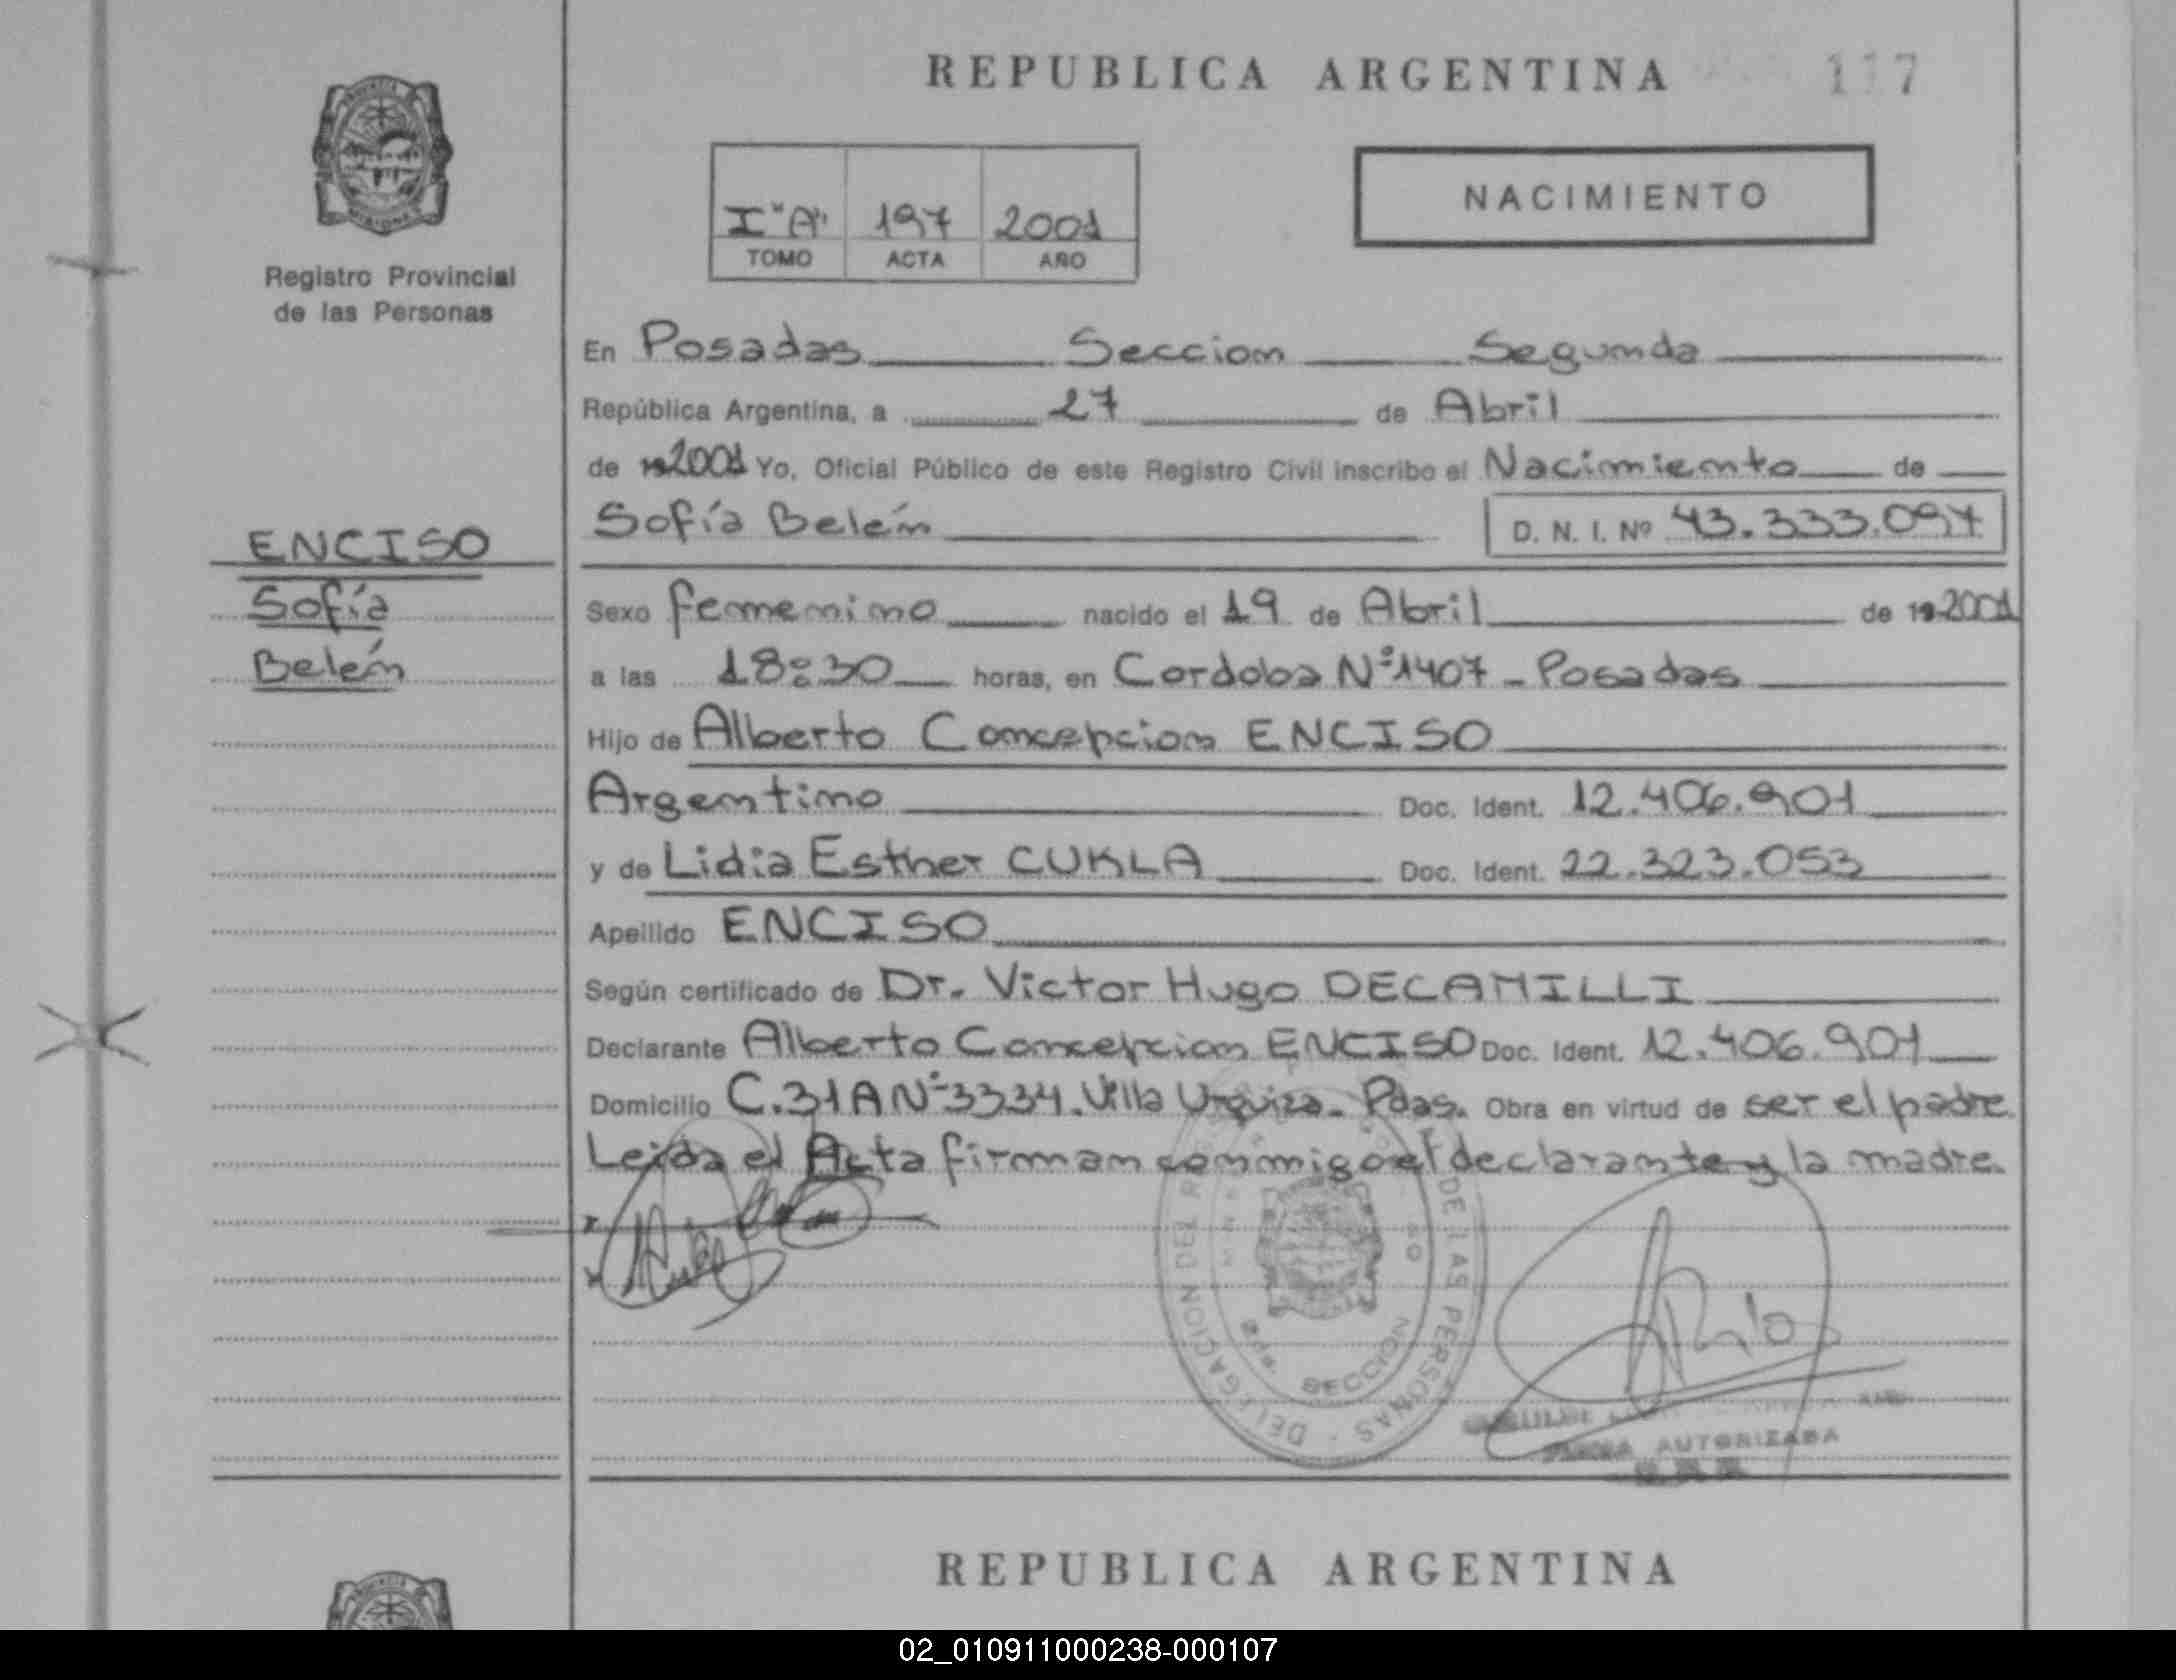 REPUBLICA ARGENTINA 117
Registro Provincial
de las Personas
I "A" 197 2001
TOMO ACTA AÑO
NACIMIENTO
En Posadas Seccion Segunda
República Argentina, a 27 de Abril
de 19 2001 Yo, Oficial Público de este Registro Civil inscribo el Nacimiento de
Sofía Belén D. N. I. Nº 43.333.097
ENCISO
Sofía
Belén
Sexo femenino nacido el 19 de Abril de 19 2001
a las 18:30 horas, en Cordoba Nº 1407 - Posadas
Hijo de Alberto Concepcion ENCISO
Argentino Doc. Ident. 12.406.901
y de Lidia Esther CUKLA Doc. Ident. 22.323.053
Apellido ENCISO
Según certificado de Dr. Victor Hugo DECAMILLI
Declarante Alberto Concepcion ENCISO Doc. Ident. 12.406.901
Domicilio C.31A Nº 3334. Villa Urquiza - Pdas. Obra en virtud de ser el padre.
Leida el Acta firman conmigo el declarante y la madre.
DELEGACION DEL DE LAS PERSONAS
2da. SECCION
AUTORIZADA
REPUBLICA ARGENTINA
02_010911000238-000107